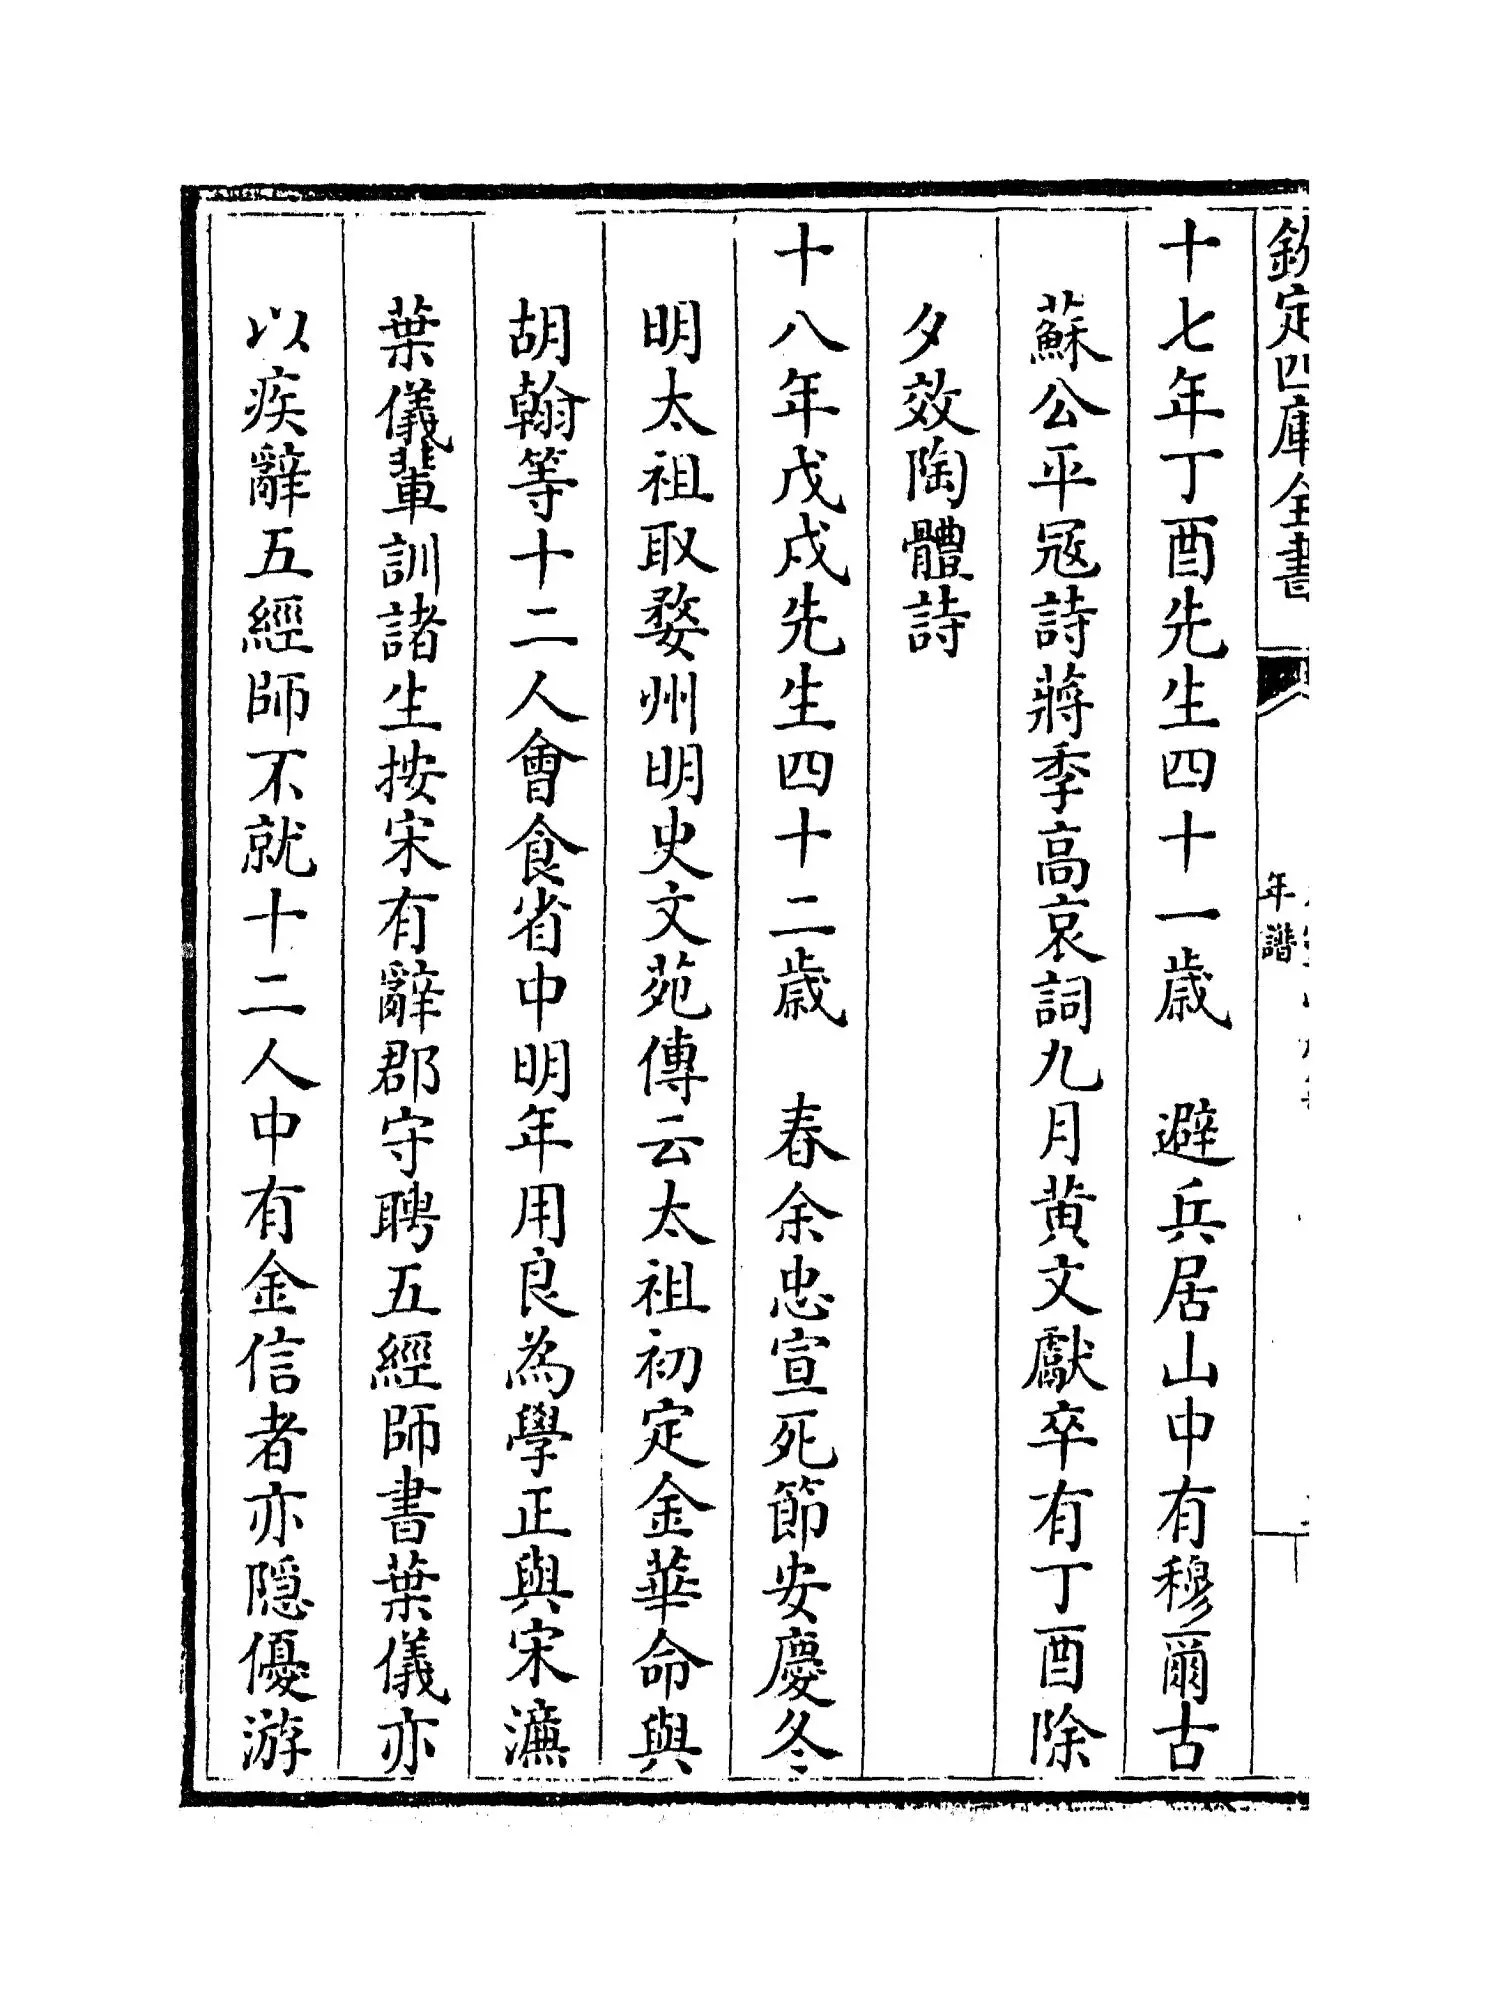 欽定四庫全書
年譜
十七年丁酉先生四十一歲　避兵居山中有穆爾古
蘇公平冦詩蔣季高哀詞九月黄文獻卒有丁酉除
夕效陶體詩
十八年戊戌先生四十二歲　春余忠宣死節安慶冬
明太祖取婺州明史文苑傳云太祖初定金華命與
胡翰等十二人會食省中明年用良為學正與宋濂
葉儀輩訓諸生按宋有辭郡守聘五經師書葉儀亦
以疾辭五經師不就十二人中有金信者亦隠優游